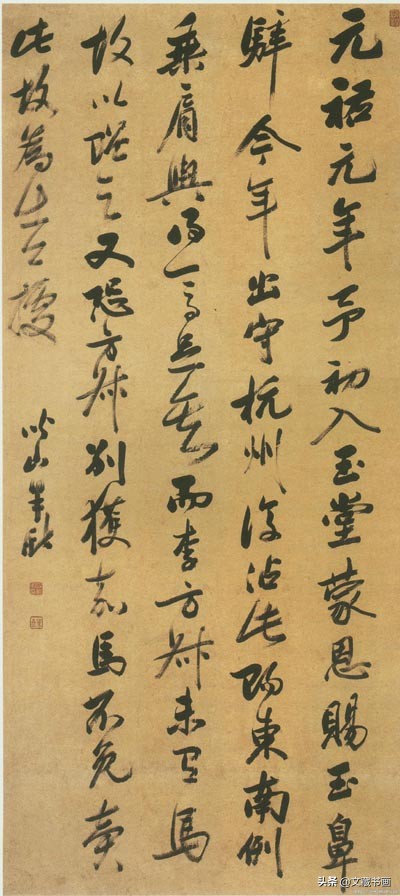 元祐元年予初入玉堂蒙恩賜玉鼻
騂今年出守杭州復沾此賜東南例
乘肩輿得一馬足矣而李方叔未有馬
故以贈之又恐方叔別獲嘉馬不免賣
此故為出公據
山
头条 @文书画